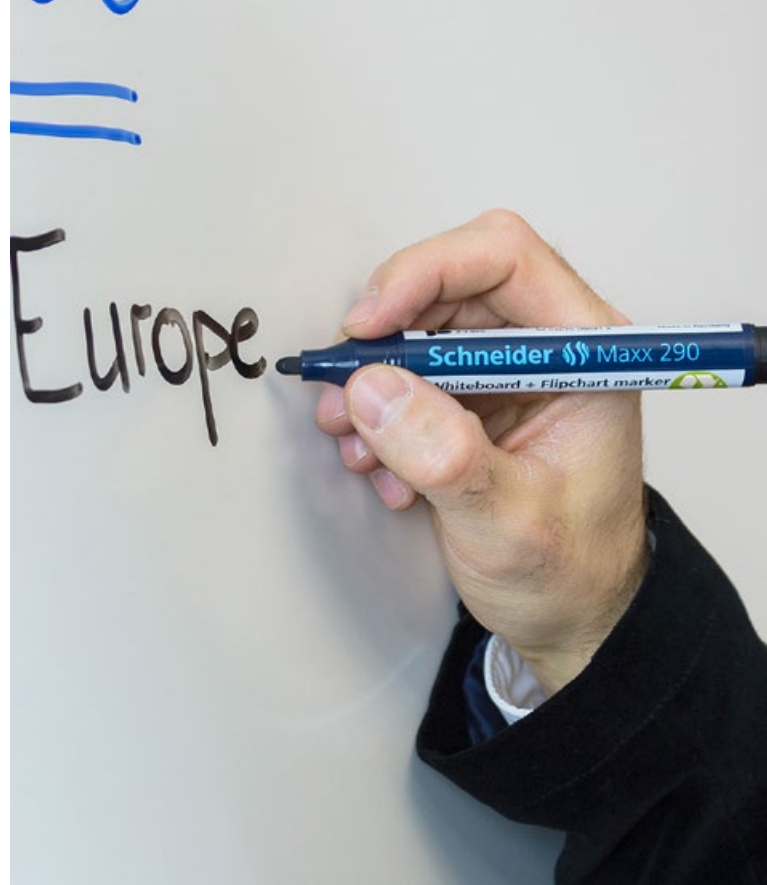 Europe
Schneider Maxx 290
Whiteboard + Flipchart marker